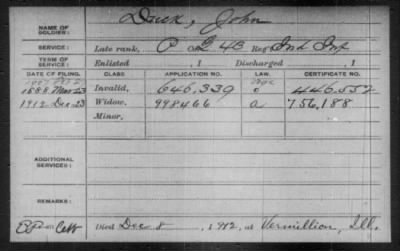 NAME OF SOLDIER: Druck, John
SERVICE: Late rank, P Co. G 43 Reg't Ind Inf
TERM OF SERVICE: Enlisted , 1 Discharged , 1
DATE OF FILING. CLASS. APPLICATION NO. LAW. CERTIFICATE NO.
1888 Mar 23 Invalid, 646.339 446.552
1912 Dec 23 Widow, 998466 a 756,188
Minor,
ADDITIONAL SERVICES:
REMARKS:
Died Dec 8 , 1912, at Vermillion, Ill.